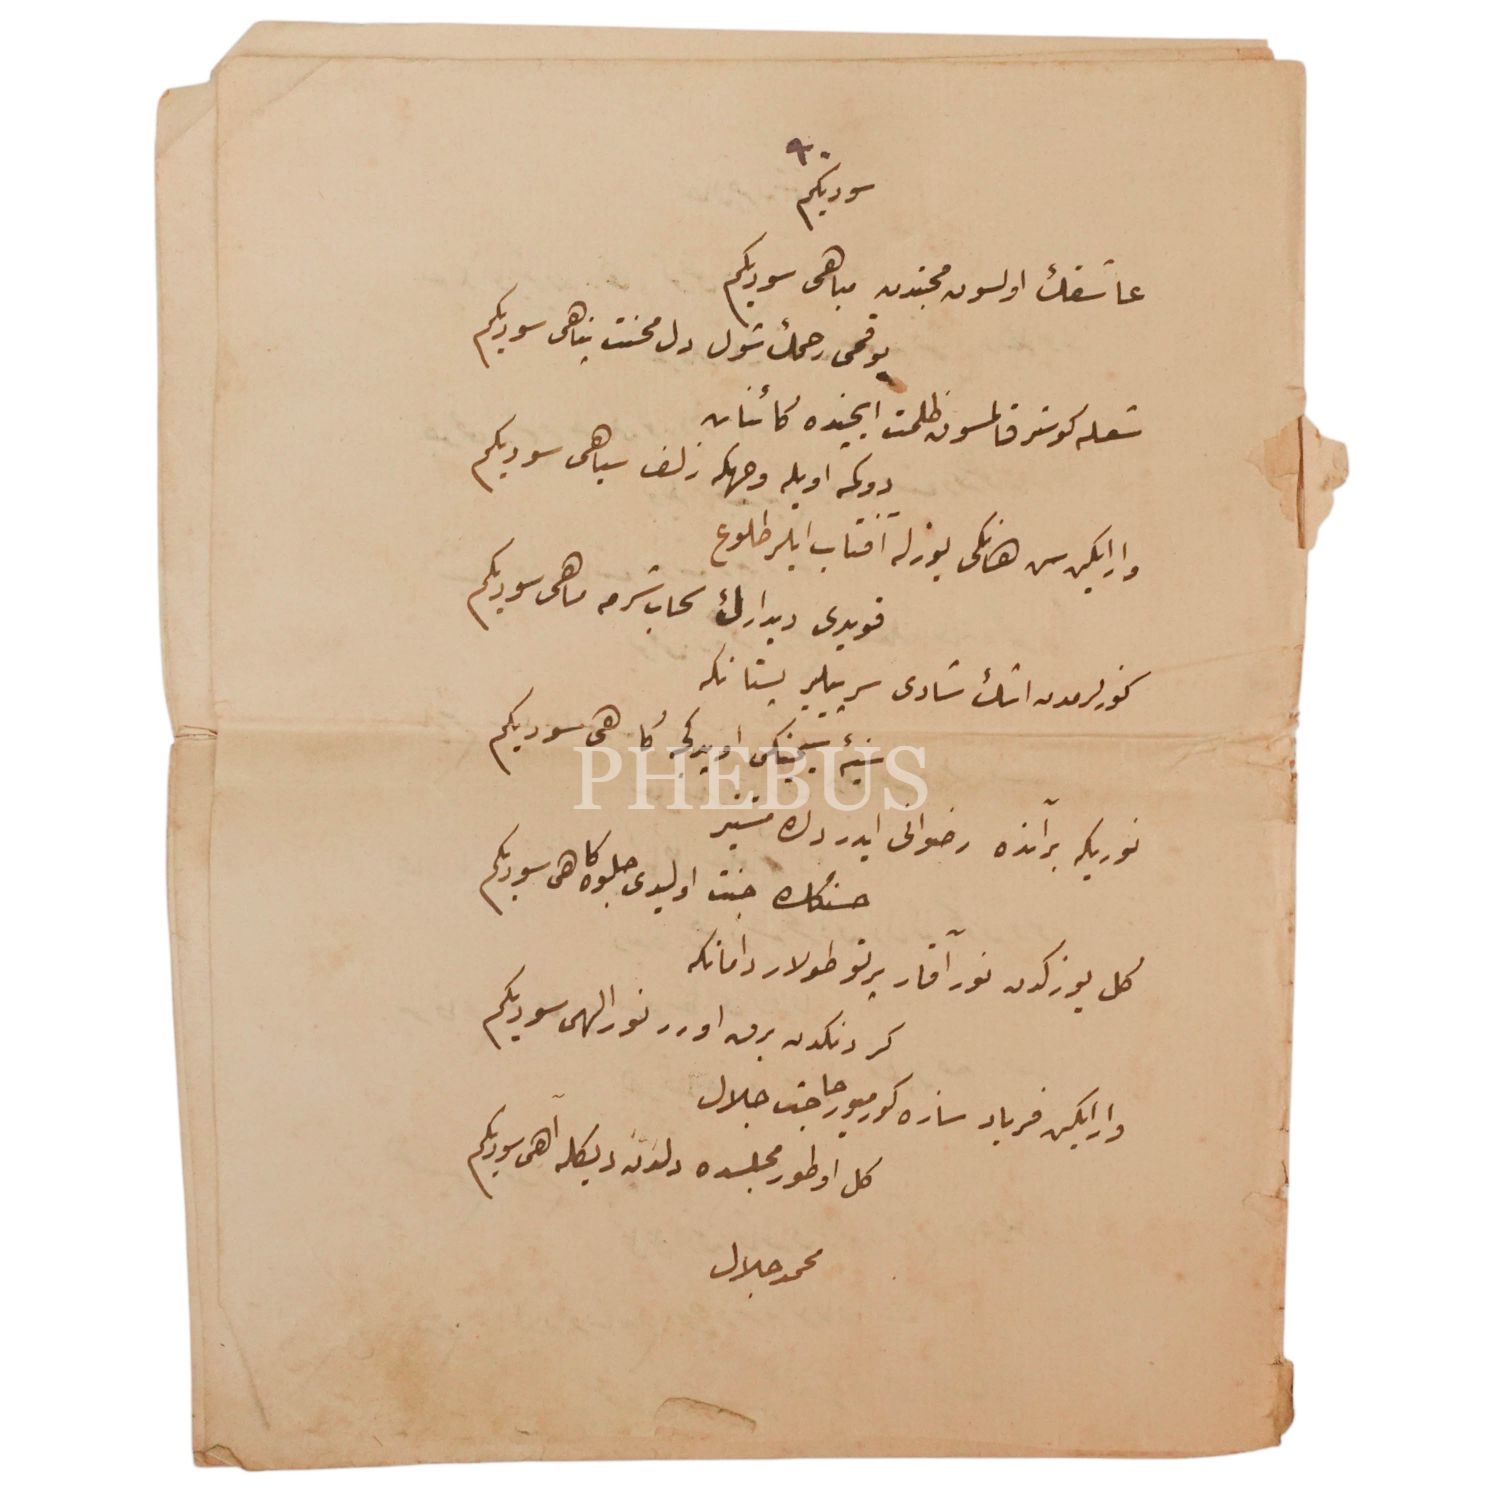 ۹۰
سودیکم
عاشقك اولسون محبتدن مباهی سودیکم
یوقمی رحمك شول دل محنت پناهی سودیکم
شعله کوستر قالمسون ظلمت ایچنده کائنات
دوکمه اویله وجهکه زلف سیاهی سودیکم
وار ایکن سن هانکی یوزله آفتاب ایلر طلوع
قویدی دیدارك سحاب شرمه ماهی سودیکم
کوزلرمدن اشك شادی سرپیلیر
سینه اویدقجه کاهی سودیکم
نوریکه بر آنده رضوانی ایدر دل مستنیر
حسنکله جنت اولیدی جلوه کاهی سودیکم
کل یوزکدن نور آقار پرتو طولار دامانکه
کردنکدن برق اورر نور الهی سودیکم
وار ایکن فریاد سازه کورمیور حاجت جلال
کل اوطور مجلسده دلدن دیکله آهی سودیکم
محمد جلال
PHEBUS